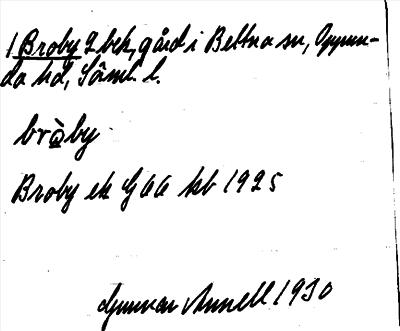 1 Broby 2 bek, gård i Bettna sn, Oppun-
da hd, Söml. l.
bròby
Broby ek GAA kb 1925
Gunvor Annell 1930